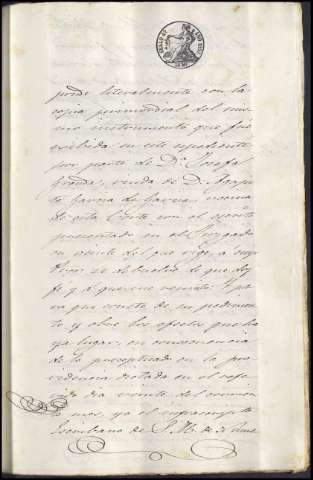 puede literalmente con la
copia primordial del mis-
mo instrumento que fué
exibida en este espediente
por parte de Dª Josefa
viuda de D.
de García, vecina
de esta Corte con el escrito
presentado en el Juzgado
en veinte del que rige, a cuyo
se debuelve de que doy
fe y á que me remito. Y pa
ra que conste de su pedimen-
to, y obre los efectos que ha
ya lugar, en consecuencia
de lo preceptuado en la pro
videncia dictada en el refe
rido dia veinte del corrien
te mes, yo el infrascripto
Escribano de S. M. de